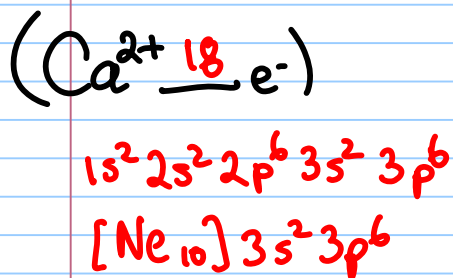 (Ca²⁺ 18 e⁻)
1s² 2s² 2p⁶ 3s² 3p⁶
[Ne₁₀] 3s² 3p⁶